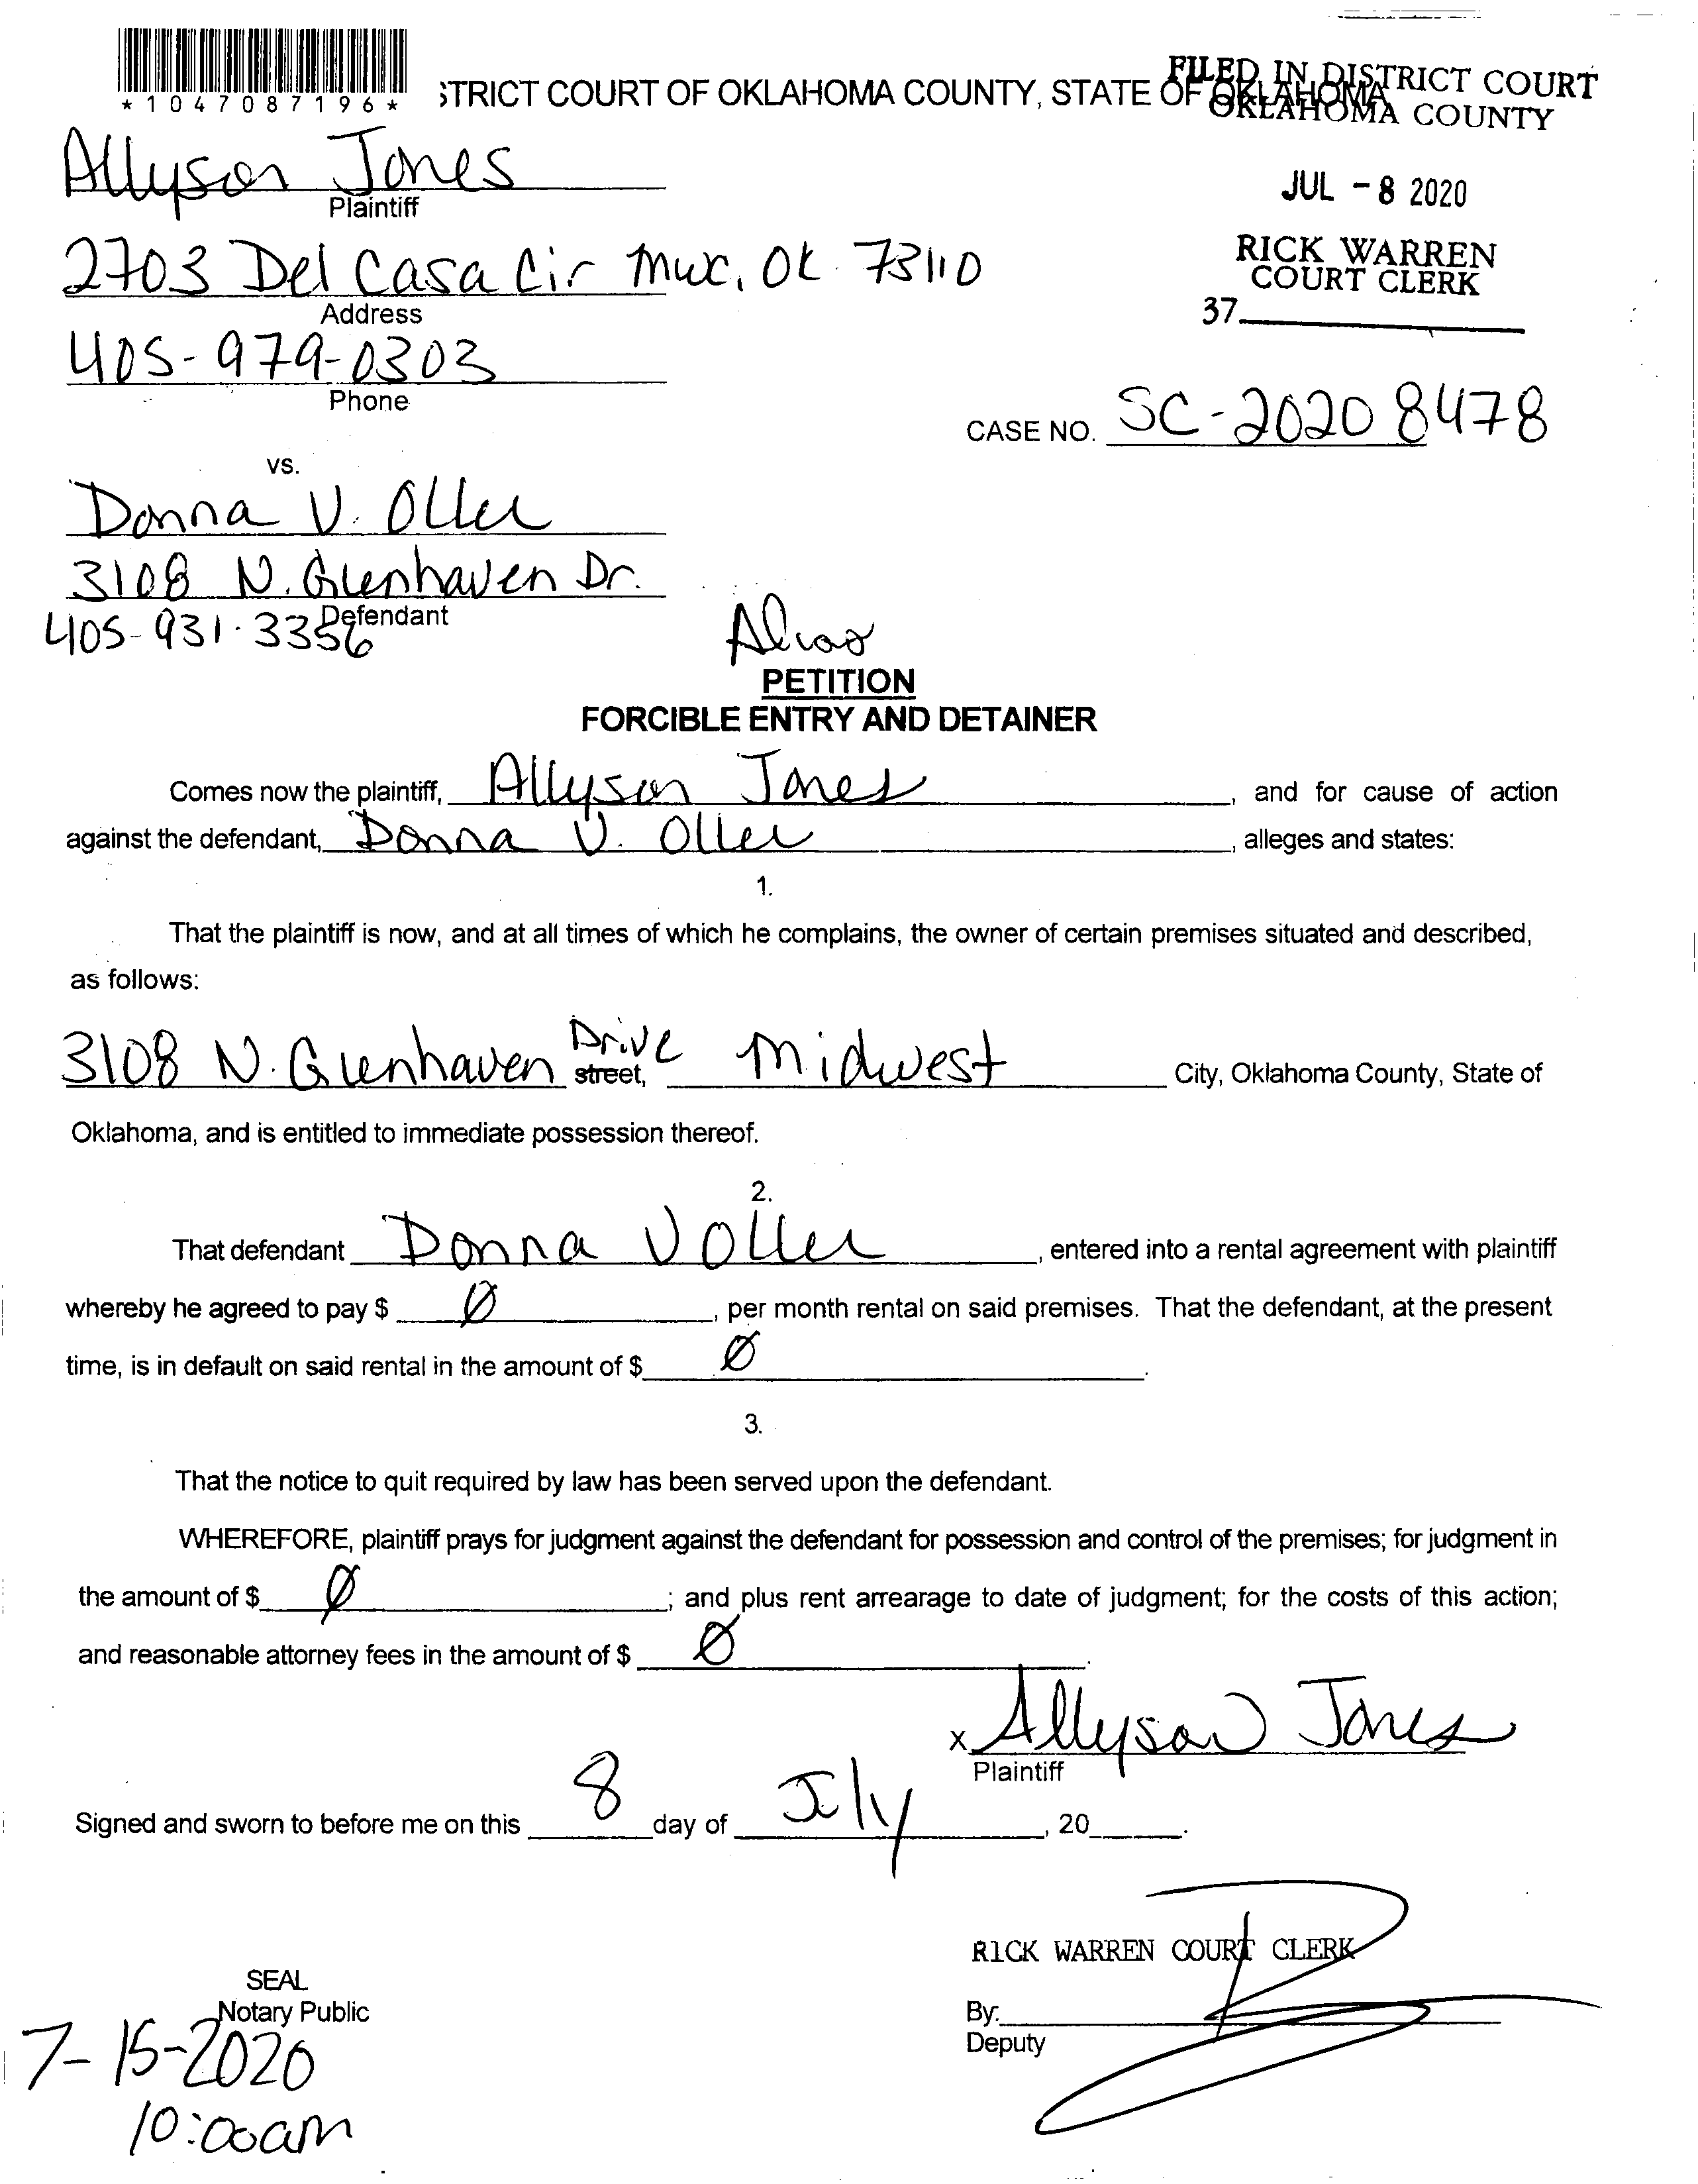 *1047087196*
STRICT COURT OF OKLAHOMA COUNTY, STATE OF OKLAHOMA
FILED IN DISTRICT COURT
OKLAHOMA COUNTY
JUL - 8 2020
RICK WARREN
COURT CLERK
37
Allyson Jones
Plaintiff
2703 Del Casa Cir MWC, OK 73110
Address
405-979-0303
Phone
CASE NO. SC-2020 8478
vs.
Donna V. Oller
3108 N. Glenhaven Dr.
Defendant
405-931-3356
PETITION
FORCIBLE ENTRY AND DETAINER
Comes now the plaintiff, Allyson Jones, and for cause of action
against the defendant, Donna V. Oller, alleges and states:
1.
That the plaintiff is now, and at all times of which he complains, the owner of certain premises situated and described,
as follows:
3108 N. Glenhaven Drive street, Midwest City, Oklahoma County, State of
Oklahoma, and is entitled to immediate possession thereof.
2.
That defendant Donna V Oller, entered into a rental agreement with plaintiff
whereby he agreed to pay $ Ø, per month rental on said premises. That the defendant, at the present
time, is in default on said rental in the amount of $ Ø.
3.
That the notice to quit required by law has been served upon the defendant.
WHEREFORE, plaintiff prays for judgment against the defendant for possession and control of the premises; for judgment in
the amount of $ Ø; and plus rent arrearage to date of judgment; for the costs of this action;
and reasonable attorney fees in the amount of $ Ø.
x Allyson Jones
Plaintiff
Signed and sworn to before me on this 8 day of July, 20__.
RICK WARREN COURT CLERK
SEAL
Notary Public
By:
Deputy
7-15-2020
10:00am